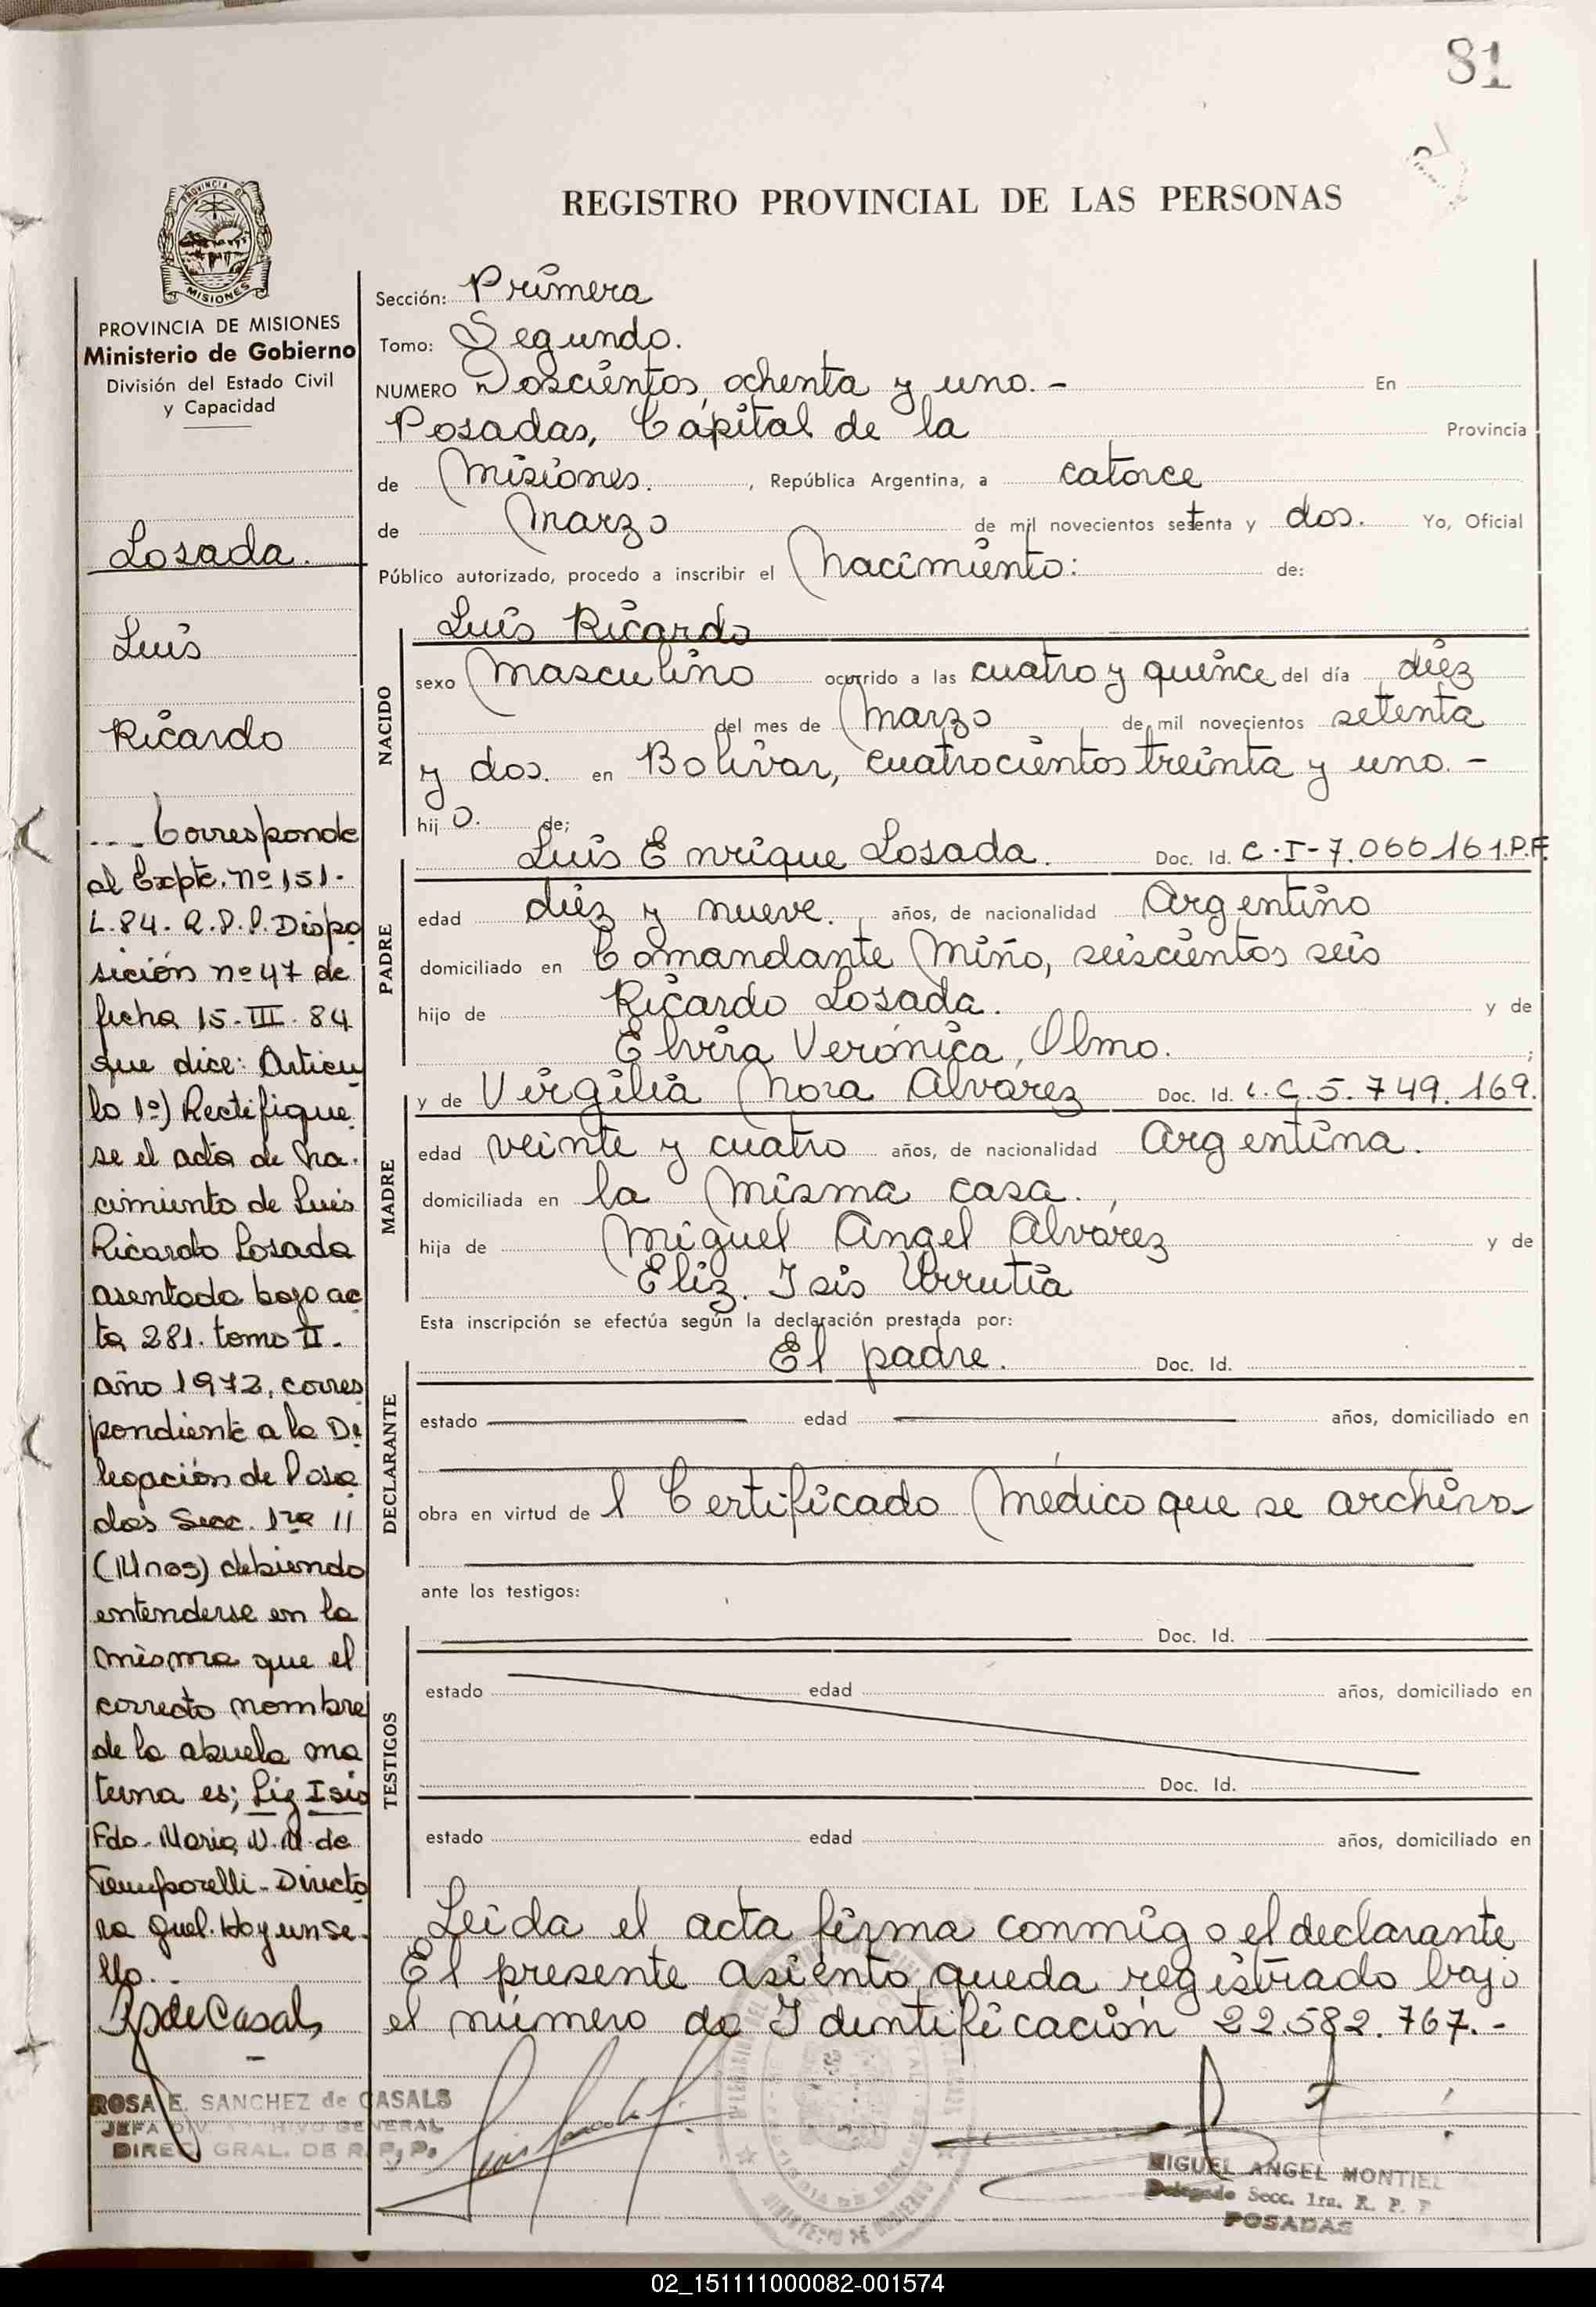 81
REGISTRO PROVINCIAL DE LAS PERSONAS
PROVINCIA DE
MISIONES
PROVINCIA DE MISIONES
Ministerio de Gobierno
División del Estado Civil
y Capacidad
Losada.
Luis
Ricardo
.... Corresponde
al Expte. nº 151-
L. 84. R.P.P. Dispo
sición nº 47 de
fecha 15-III-84
que dice: Articu
lo 1º) Rectifique
se el acta de na-
cimiento de Luis
Ricardo Losada
asentado bajo ac
ta 281. tomo II.
año 1972, corres
pondiente a la De
legación de Posa
das Secc. 1ra
debiendo
entenderse en la
misma que el
correcto nombre
de la abuela ma
terna es; Liz Isis
Fdo. Maria
Temporelli - Directo
ra Gral. Hay un se-
llo.-
ROSA E. SANCHEZ de CASALS
JEFA DIV. ARCHIVO GENERAL
DIREC. GRAL. DE R. P. P.
Sección: Primera
Tomo: Segundo.
NUMERO Doscientos, ochenta y uno.- En
Posadas, Capital de la Provincia
de Misiones. , República Argentina, a catorce
de Marzo de mil novecientos setenta y dos. Yo, Oficial
Público autorizado, procedo a inscribir el Nacimiento: de:
NACIDO
Luis Ricardo
sexo Masculino ocurrido a las cuatro y quince del día diez
del mes de Marzo de mil novecientos setenta
y dos. en Bolivar, cuatrocientos treinta y uno.-
hij o. de;
PADRE
Luis Enrique Losada. Doc. Id. C.I-7.066.161.P.F.
edad diez y nueve. años, de nacionalidad Argentino
domiciliado en Comandante Miño, seiscientos seis
hijo de Ricardo Losada. y de
Elvira Verónica Olmo. ;
MADRE
y de Virgilia Nora Alvarez Doc. Id. L.C. 5.749.169.
edad veinte y cuatro años, de nacionalidad Argentina.
domiciliada en la misma casa.
hija de Miguel Angel Alvarez y de
Eliz. Isis Urrutia
Esta inscripción se efectúa según la declaración prestada por:
DECLARANTE
El padre. Doc. Id.
estado edad años, domiciliado en
obra en virtud de l Certificado Médico que se archiva
ante los testigos:
TESTIGOS
Doc. Id.
estado edad años, domiciliado en
Doc. Id.
estado edad años, domiciliado en
Leida el acta firma conmigo el declarante
El presente asiento queda registrado bajo
el número de Identificación 22.582.767.-
MIGUEL ANGEL MONTIEL
Delegado Secc. 1ra. R. P. P.
POSADAS
02_151111000082-001574